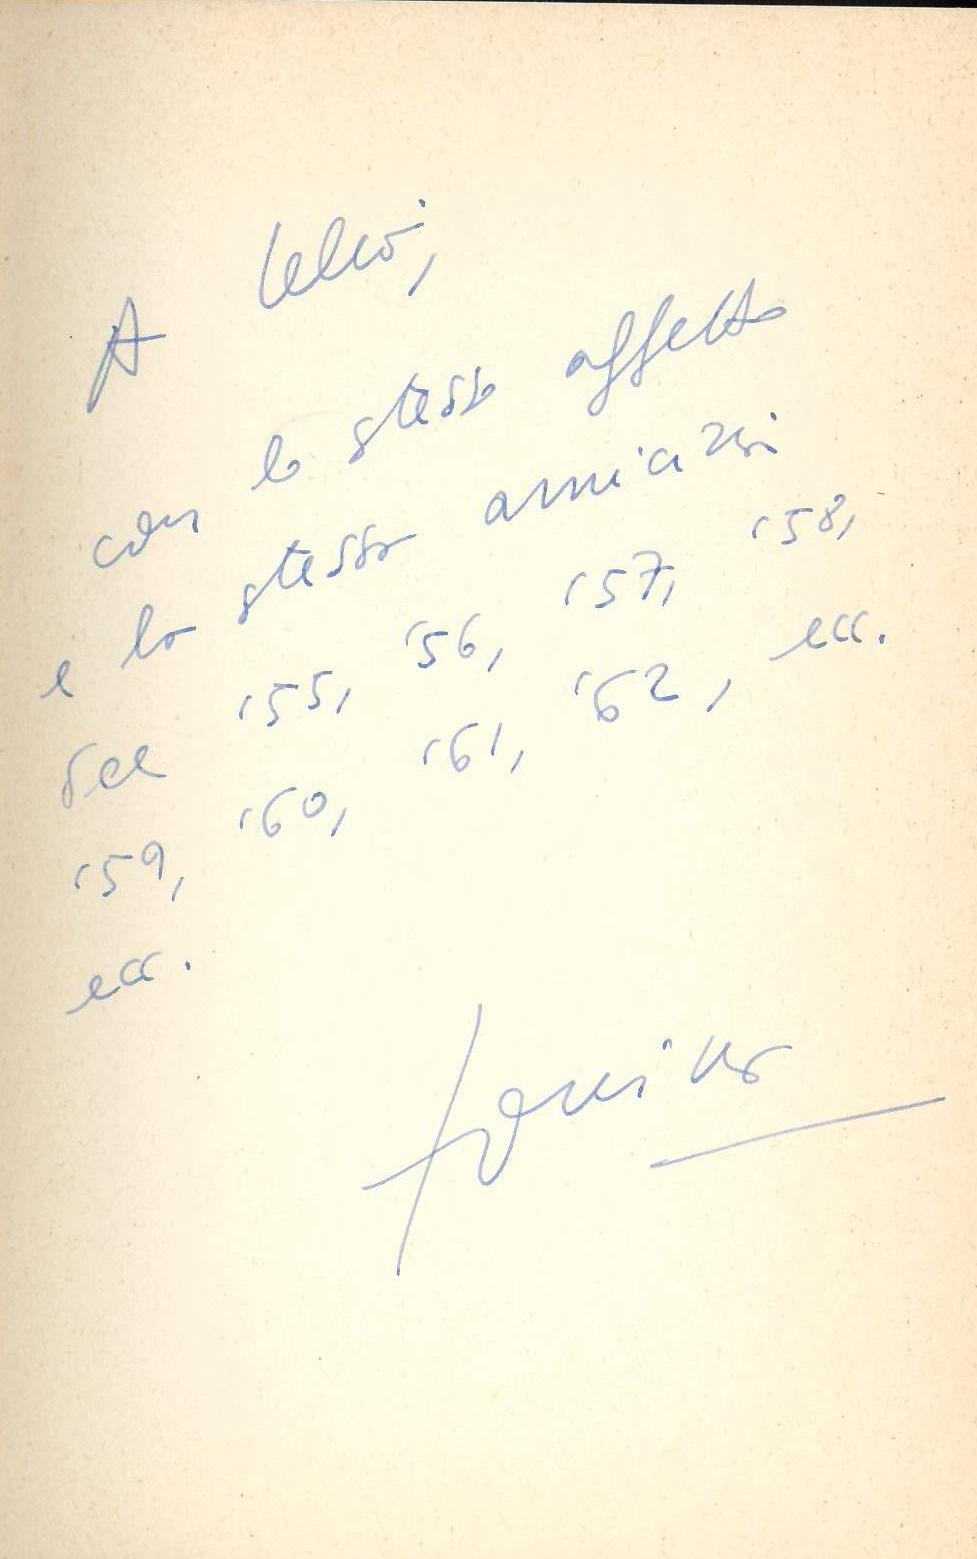 A Lelio,
con lo stesso affetto
e la stessa amicizia
del '55, '56, '57, '58,
'59, '60, '61, '62, ecc.
ecc.